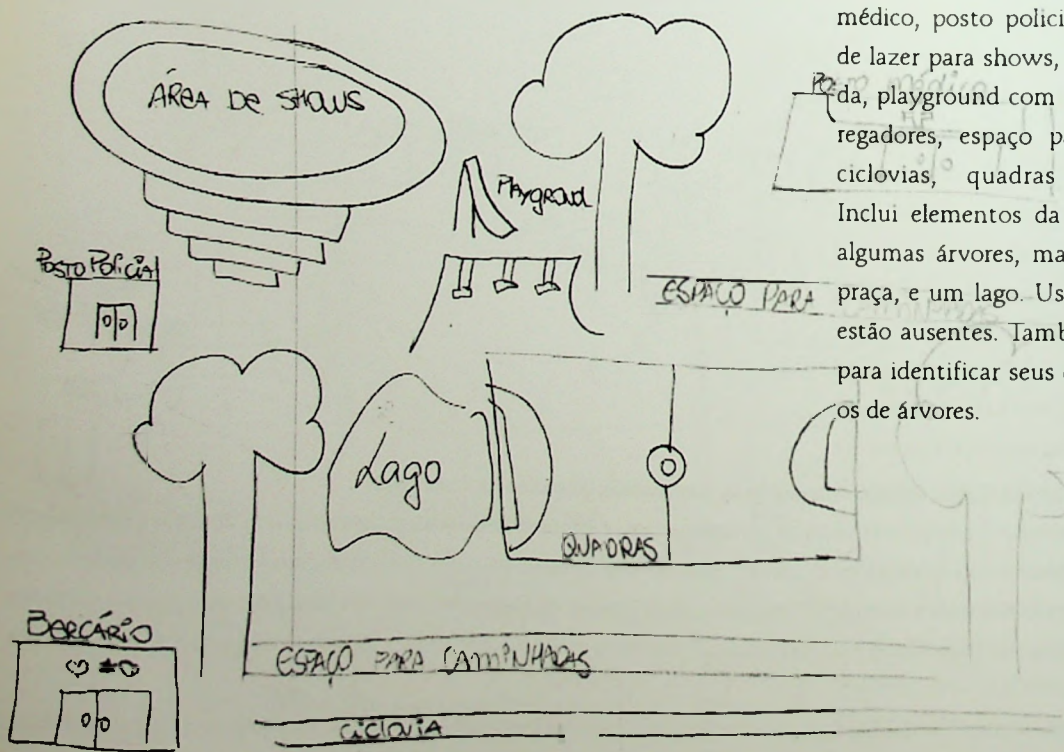 ÁREA DE SHOWS
PLAYGROUND
POSTO POLICIAL
ESPAÇO PARA
Lago
QUADRAS
BERÇÁRIO
ESPAÇO PARA CAMINHADAS
CICLOVIA
médico, posto polici
de lazer para shows,
da, playground com
regadores, espaço p
ciclovias, quadras
Inclui elementos da
algumas árvores, ma
praça, e um lago. Us
estão ausentes. Tamb
para identificar seus
os de árvores.